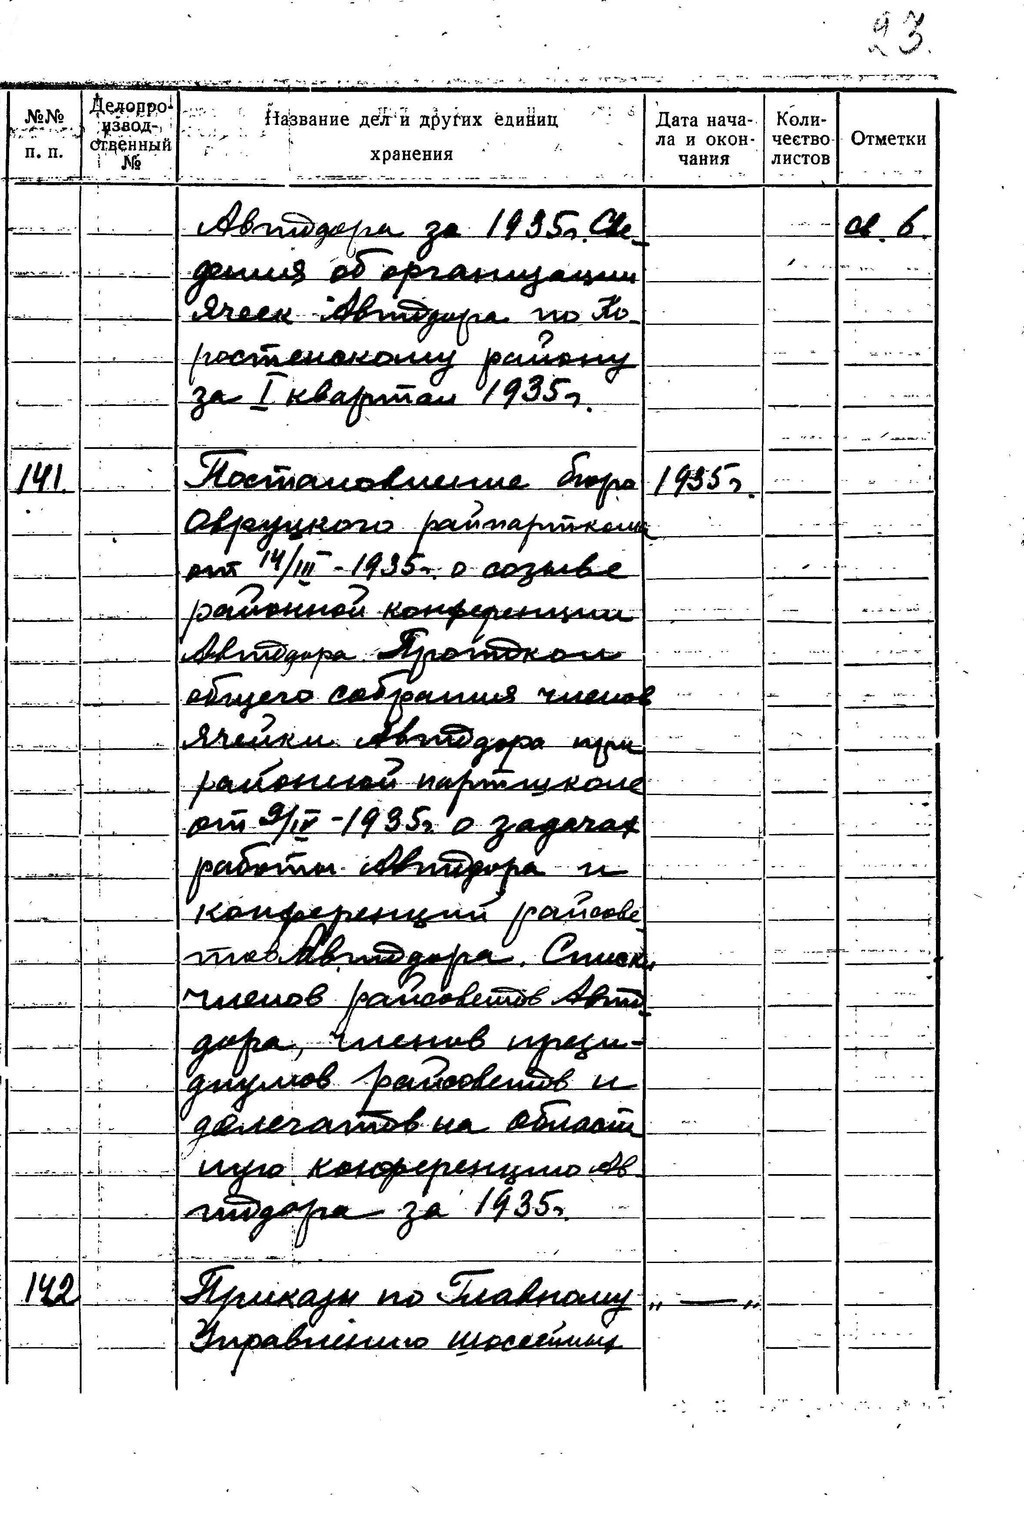 23.
№№ п. п. Делопро-извод-ственный № Название дел и других единиц хранения Дата нача-ла и окон-чания Коли-чество листов Отметки
Автодора за 1935г. Све- св. 6.
дения об организации
ячеек Автодора по Ко-
ростенскому району
за I квартал 1935г.
141. Постановление бюро 1935г.
Овруцкого райпарткома
от 14/III-1935г. о созыве
районной конференции
Автодора. Протокол
общего собрания членов
ячейки Автодора при
районной партшколе
от 9/IV-1935г. о задачах
работы Автодора и
конференций райсове-
тов Автодора. Списки
членов райсоветов Авто-
дора, членов прези-
диумов райсоветов и
делегатов на област
ную конференцию Ав
тодора за 1935г.
142 Приказы по Главному „ — „
Управлению шоссейных